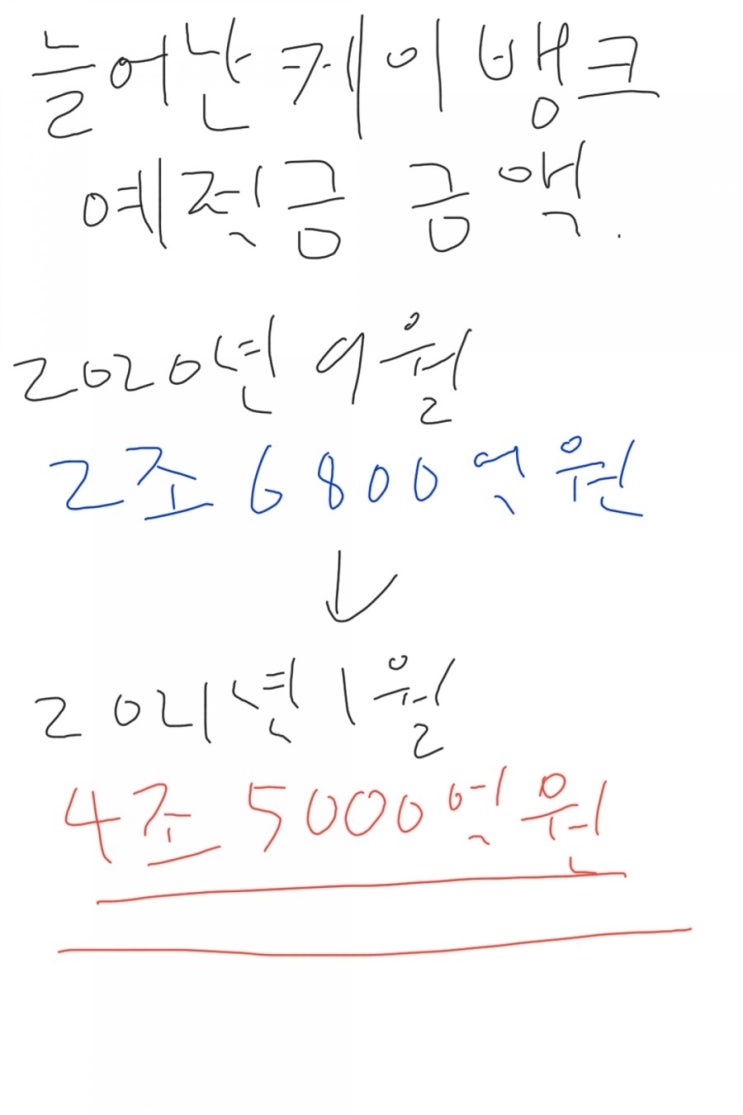 늘어난 케이뱅크
예적금 금액.
2020년 9월
2조 6800억원
↓
2021년 1월
4조 5000억원